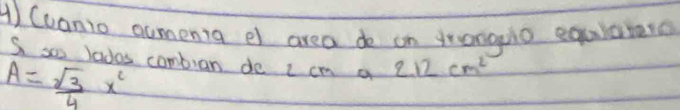 4) Cuanto aumenta el area de un triangulo equilatero
Si sus lados cambian de 2 cm a 2.12 cm²
A = √3/4 x²